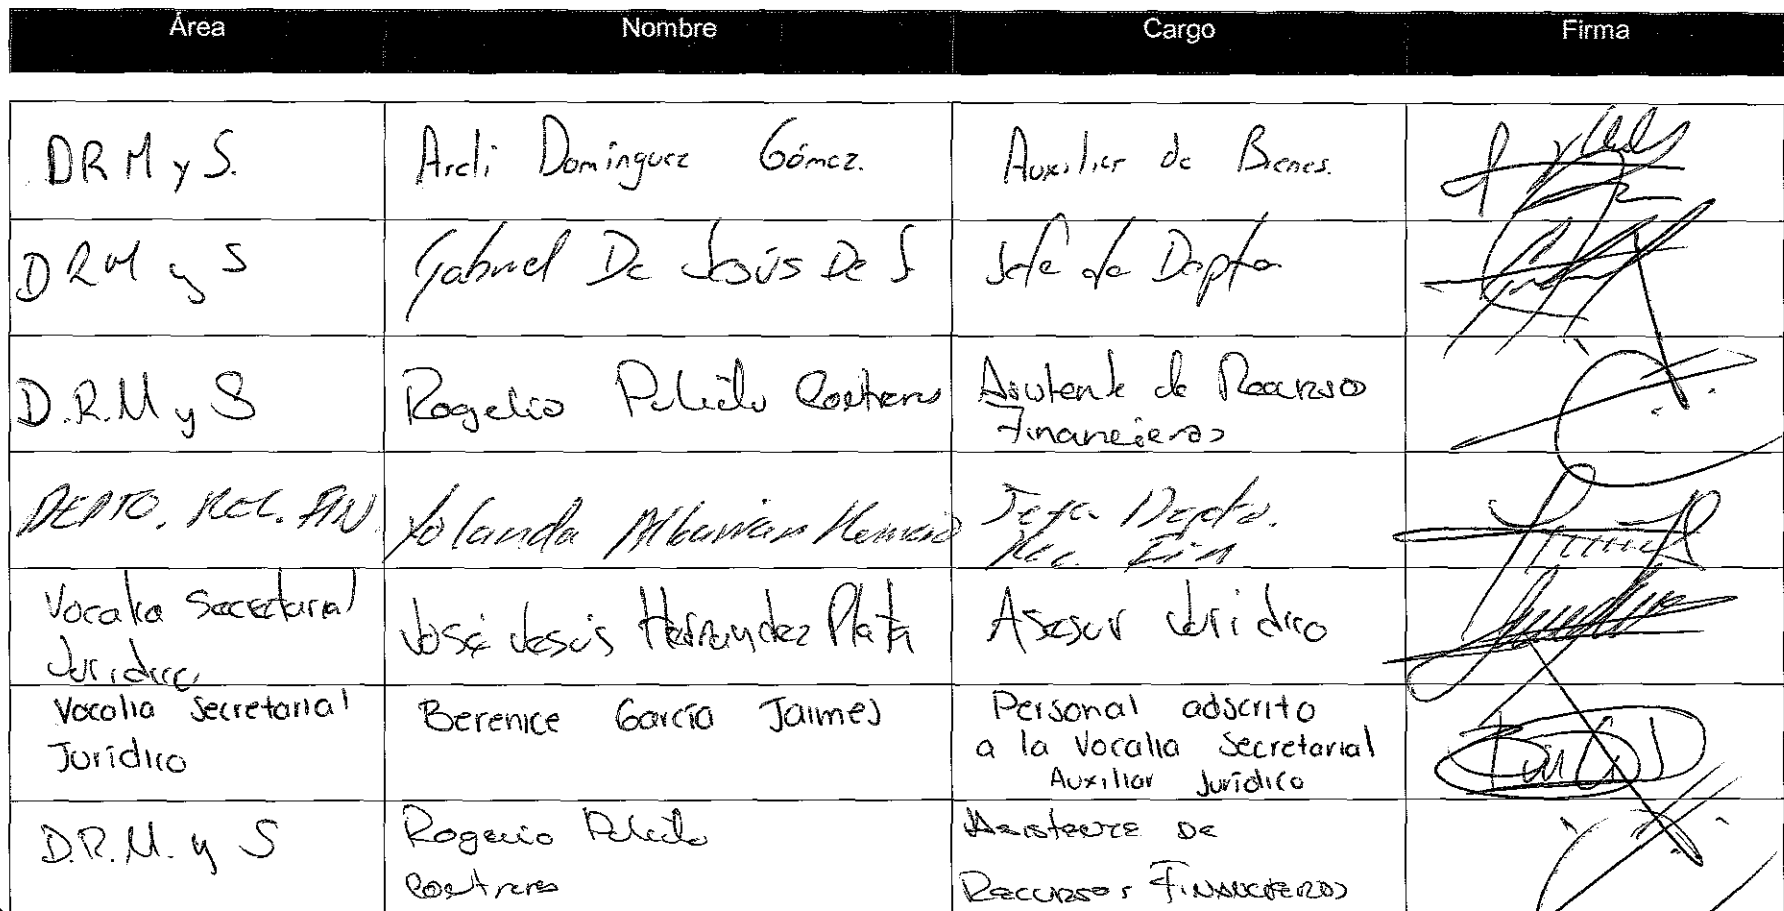 Área Nombre Cargo Firma
DRM y S. Areli Dominguez Gómez. Auxiliar de Bienes.
DRM y S Gabriel De Jesús De J. Jefe de Depto
D.R.M y S Rogelio Contreras Asistente de Recurso
Financieros
DEPTO. REC. FIN. Yolanda Jefa Depto.
Rec. Fin
Vocalía Secretarial José Jesús Hernández Plata Asesor Jurídico
Jurídica
Vocalia Secretarial Berenice García Jaimes Personal adscrito
Jurídico a la Vocalia Secretarial
Auxiliar Jurídico
D.R.M. y S Rogelio Asistente De
Contreras Recursos Financieros